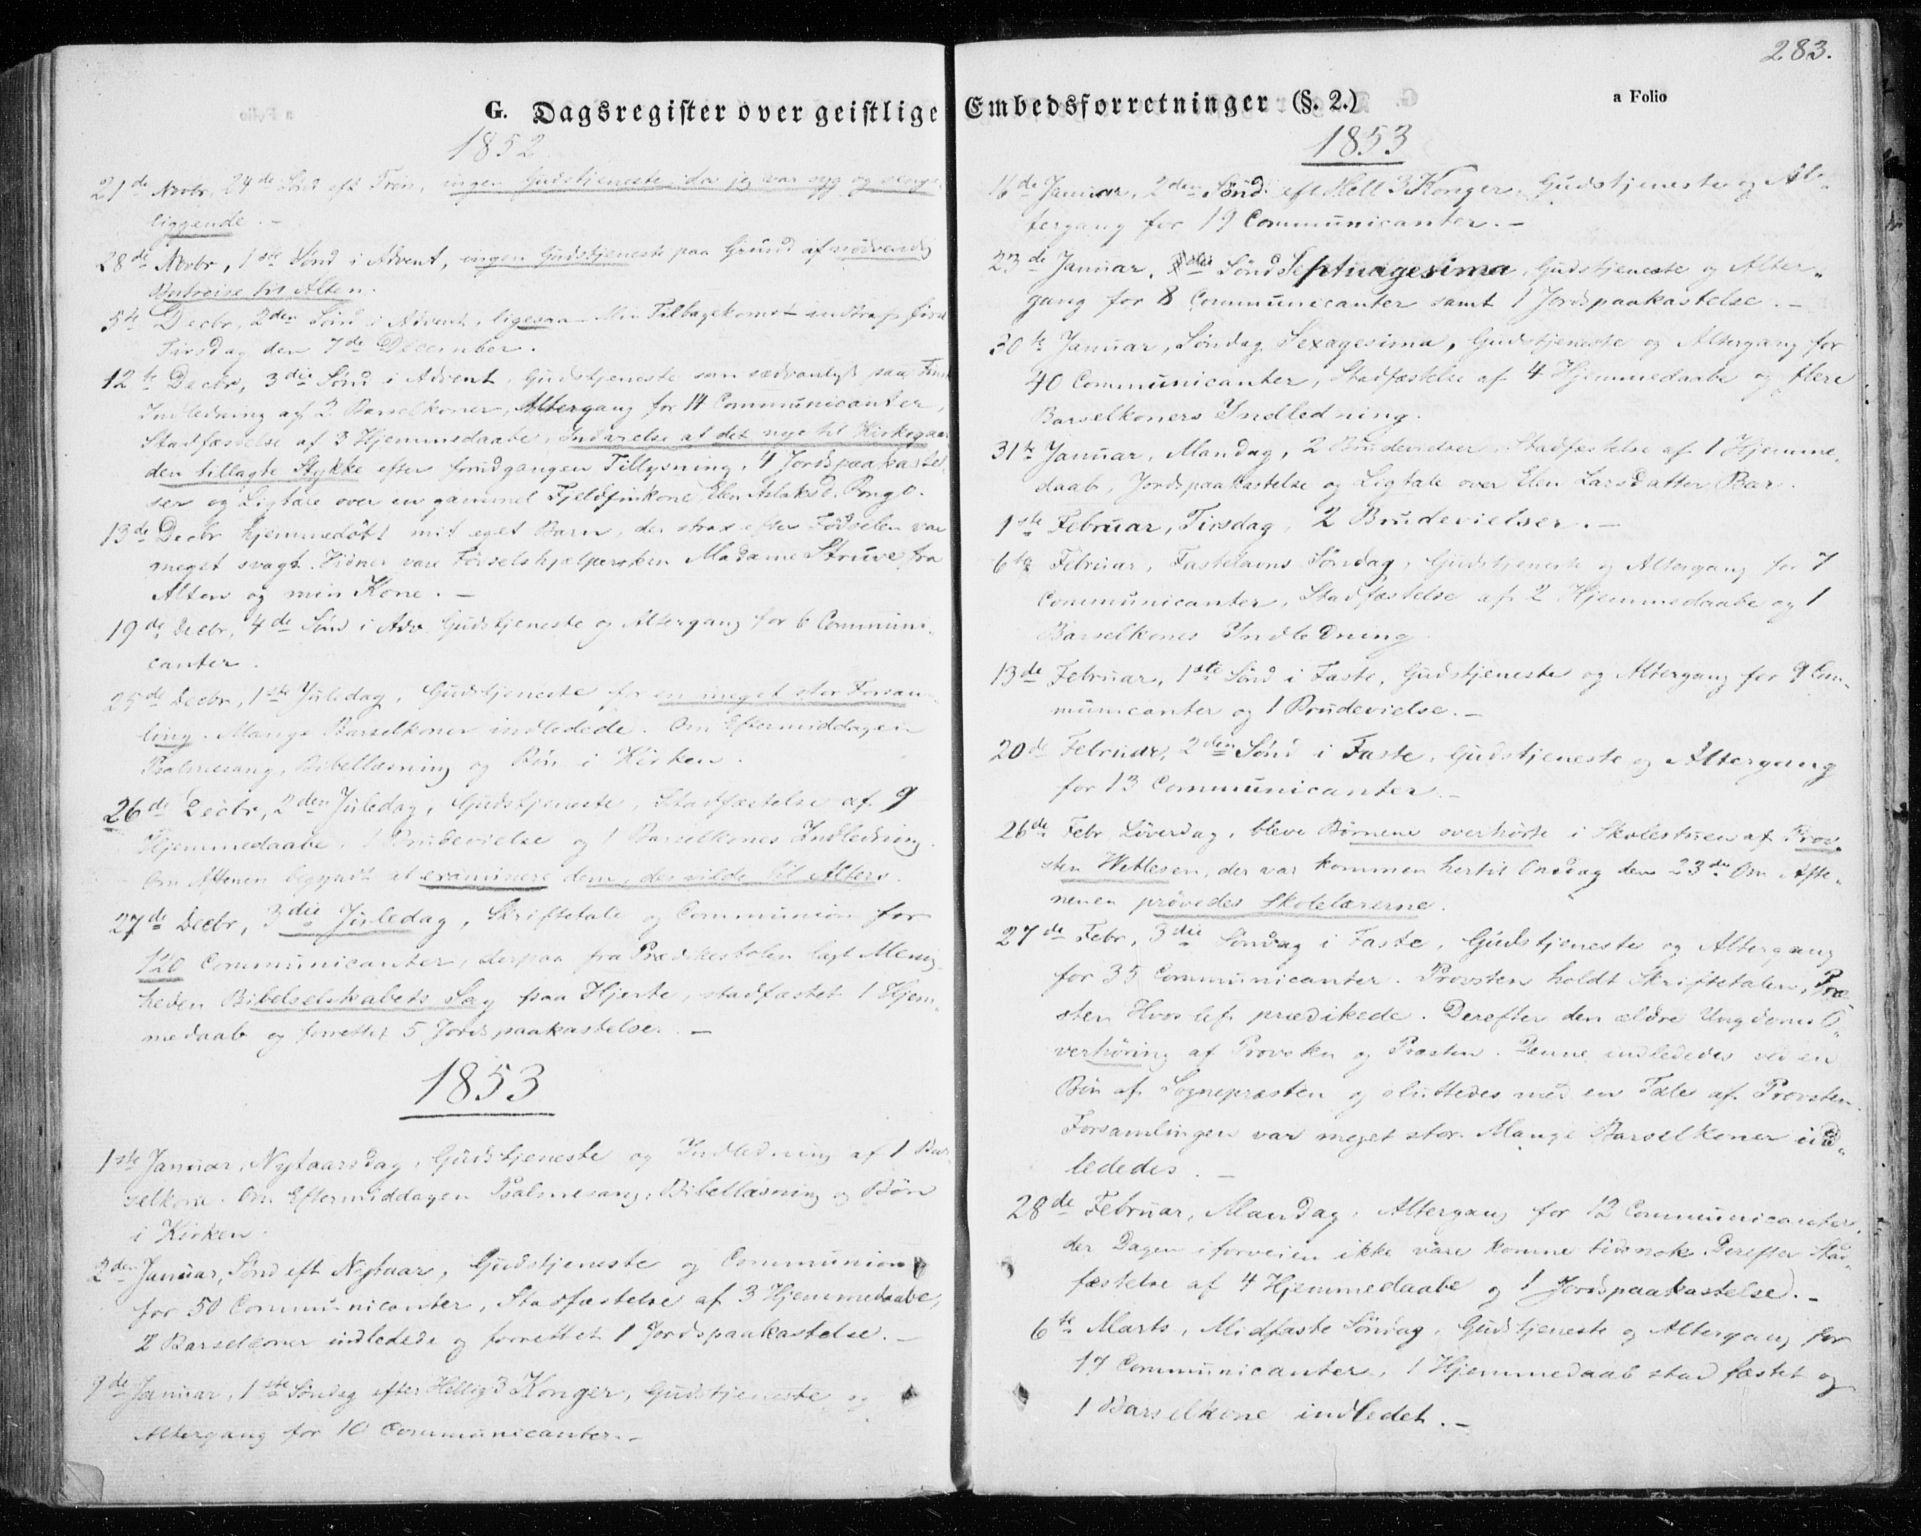 G. Dagsregister over geistlige
1852
21de Novbr, 24de Sønd eft Trin, ingen Gudstjeneste da jeg var syg og senge
liggende. -
28de Novbr, 1ste Sønd i Advent, ingen Gudstjeneste paa Grund af nødvendig
til Alten.
5te Decbr, 2den Sønd i Advent, ligesaa Min Tilbagekomst indtraf først
Tirsdag den 7de December.
12te Decbr, 3die Sønd i Advent, Gudstjeneste som sædvanligt saa
Indledning af 2 Barselkoner, Altergang for 14 Communicanter,
Stadfæstelse af 3 Hjemmedaabe, Indvielse af det nye til Kirkegaar
den tillagte Stykke efter forudgangen Tillysning, 4 Jordspaakastel
ser og Ligtale over en gammel Fjeldfinkone Elen Aslaksd. Pongo.
13de Decbr hjemmedøbt mit eget Barn, der strax efter Fødselen var
meget svagt. Vidner vare Fødselshjelpersken Madame Struve fra
Alten og min Kone. -
19de Decbr, 4de Sønd i Adv. Gudstjeneste og Altergang for 6 Communi-
canter.
25de Decbr, 1ste Juledag, Gudstjeneste for en meget stor Forsam-
ling. Mange Barselkoner indledede. Om Eftermiddagen
Psalmesang, Bibellæsning og Bøn i Kirken.
26de Decbr, 2den Juledag, Gudstjeneste, Stadfæstelse af 9
Hjemmedaabe, 1 Brudevielse og 1 Barselkones Indledning.
Om Aftenen begyndt at examinere dem, der vilde til Alters.
27de Decbr, 3die Juledag, Skriftetale og Communion for
120 Communicanter, derpaa fra Prædikestolen lagt Menig-
heden Bibelselskabets Sag paa Hjerte, stadfæstet 1 Hjem-
medaab og forrettet 5 Jordspaakastelser. -
1853
1ste Januar, Nytaarsdag, Gudstjeneste og Indledning af 1 Bar-
selkone. Om Eftermiddagen Psalmesang, Bibellæsning og Bøn
i Kirken.
2den Januar, Sønd eft Nytaar, Gudstjeneste og Communion
for 50 Communicanter, Stadfæstelse af 3 Hjemmedaabe,
2 Barselkoner indledede og forrettet 1 Jordspaakastelse. -
9de Januar, 1ste Søndag efter Hellig 3 Konger, Gudstjeneste og
Altergang for 10 Communicanter. -
283.
Embedsforretninger (§. 2.)
a Folio
1853
16de Januar, 2den Sønd. eft Hell 3 Konger, Gudstjeneste og Al-
tergang for 19 Communicanter. -
23de Januar, Sønd Septuagesima, Gudstjeneste og Alter-
gang for 8 Communicanter samt 1 Jordspaakastelse. -
30te Januar, Søndag Sexagesima, Gudstjeneste og Altergang for
40 Communicanter, Stadfæstelse af 4 Hjemmedaabe og flere
Barselkoners Indledning.
31te Januar, Mandag, 2 Brudevielser, Stadfæstelse af 1 Hjemme-
daab, Jordspaakastelse og Ligtale over Elen Larsdatter Bær.
1ste Februar, Tirsdag, 2 Brudevielser. -
6te Februar, Fastelavns Søndag, Gudstjeneste og Altergang for 7
Communicanter, Stadfæstelse af 2 Hjemmedaabe og 1
Barselkones Indledning
13de Februar, 1ste Sønd i Faste, Gudstjeneste og Altergang for 9 Com-
municanter og 1 Brudevielse. -
20de Februar, 2den Sønd i Faste, Gudstjeneste og Altergang
for 13 Communicanter. -
26de Febr Løverdag, bleve Børnene overhørte i Skolestuen af Prov-
sten Wetlesen, der var kommen hertil Onsdag den 23de Om Afte-
nenen prøvedes Skolelærerne.
27de Febr, 3die Søndag i Faste, Gudstjeneste og Altergang
for 35 Communicanter. Provsten holdt Skriftetalen, Præ-
sten Hvoslef prædikede. Derefter den ældre Ungdoms O-
verhøring af Provsten og Præsten. Denne indlededes ved en
Bøn af Sognepræsten og sluttedes med en Tale af Provsten.
Forsamlingen var meget stor. Mange Barselkoner ind-
lededes. -
28de Februar, Mandag, Altergang for 12 Communicanter,
der Dagen i forveien ikke vare komne tidsnok. Derefter Stad-
fæstelse af 4 Hjemmedaabe og 1 Jordspaakastelse. -
6te Marts, Midfaste Søndag, Gudstjeneste og Altergang for
17 Communicanter, 1 Hjemmedaab stadfæstet og
1 Barselkone indledet. -